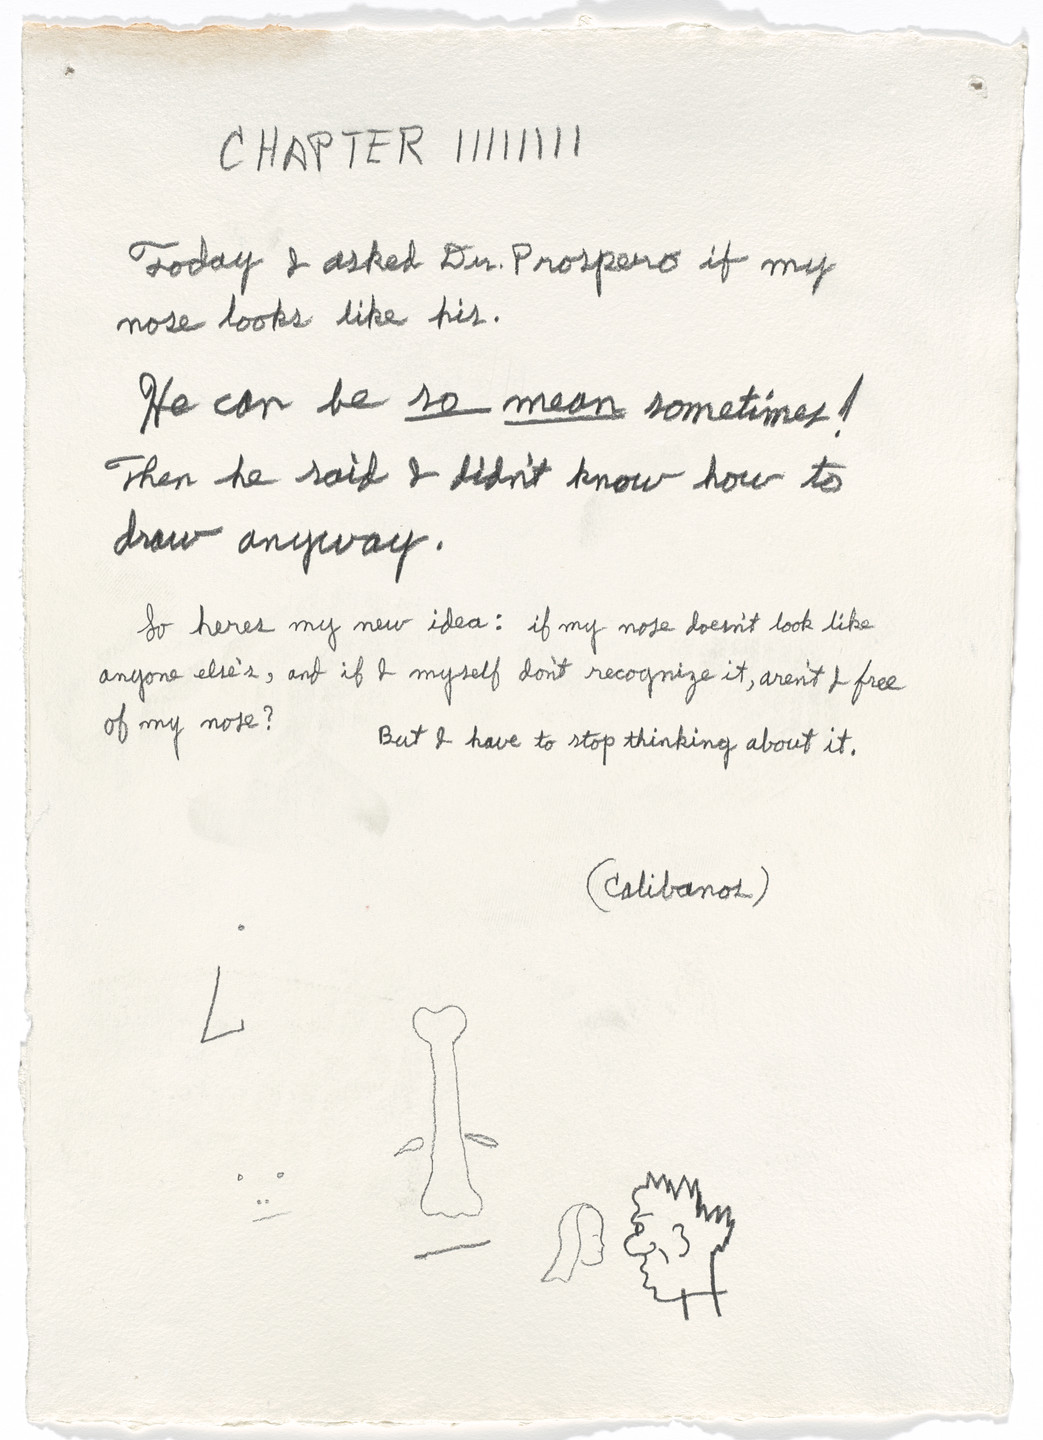 CHAPTER IIIIIIIII
Today I asked Dr. Prospero if my
nose looks like his.
He can be so mean sometimes!
Then he said I didn't know how to
draw anyway.
So heres my new idea: if my nose doesn't look like
anyone else's, and if I myself don't recognize it, aren't I free
of my nose?
But I have to stop thinking about it.
(Calibanos)